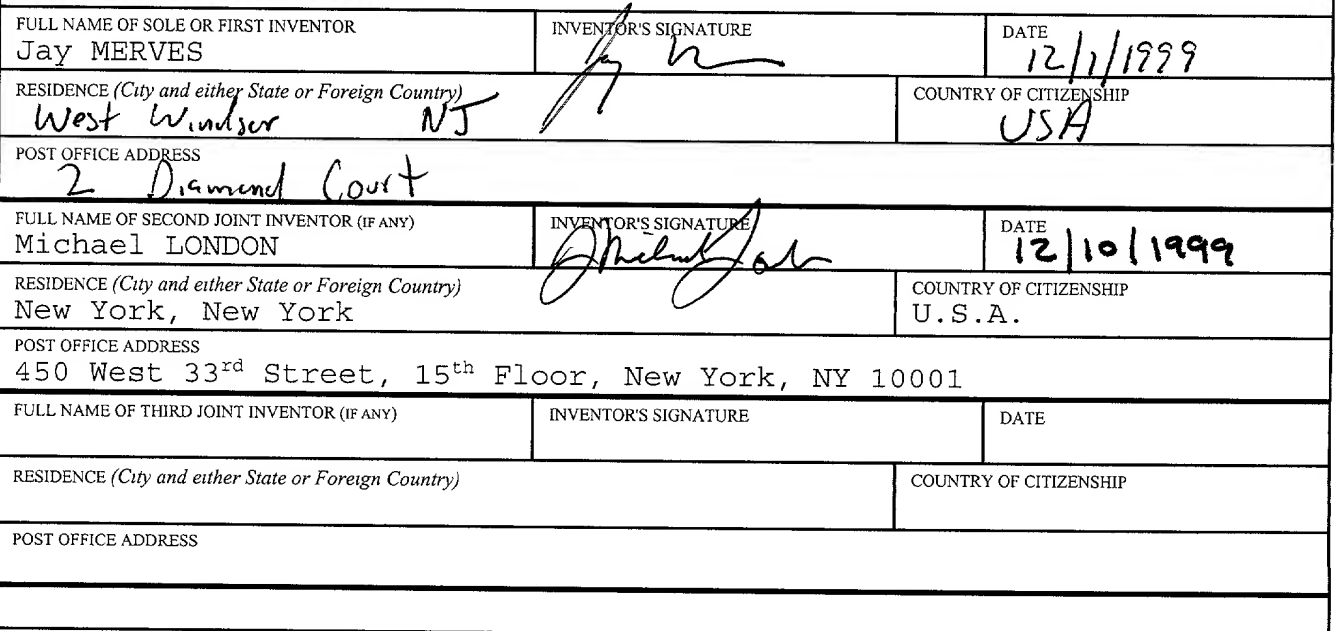 FULL NAME OF SOLE OR FIRST INVENTOR INVENTOR'S SIGNATURE DATE
Jay MERVES Jay M 12/1/1999
RESIDENCE (City and either State or Foreign Country) COUNTRY OF CITIZENSHIP
West Windsor NJ USA
POST OFFICE ADDRESS
2 Diamond Court
FULL NAME OF SECOND JOINT INVENTOR (IF ANY) INVENTOR'S SIGNATURE DATE
Michael LONDON Michael Lon 12/10/1999
RESIDENCE (City and either State or Foreign Country) COUNTRY OF CITIZENSHIP
New York, New York U.S.A.
POST OFFICE ADDRESS
450 West 33rd Street, 15th Floor, New York, NY 10001
FULL NAME OF THIRD JOINT INVENTOR (IF ANY) INVENTOR'S SIGNATURE DATE
RESIDENCE (City and either State or Foreign Country) COUNTRY OF CITIZENSHIP
POST OFFICE ADDRESS